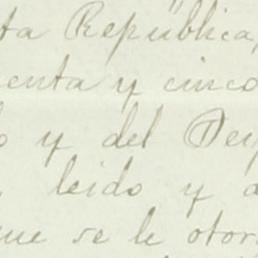 ta República,
enta y cinco
o y del Dep
leido y a
ue se le otor